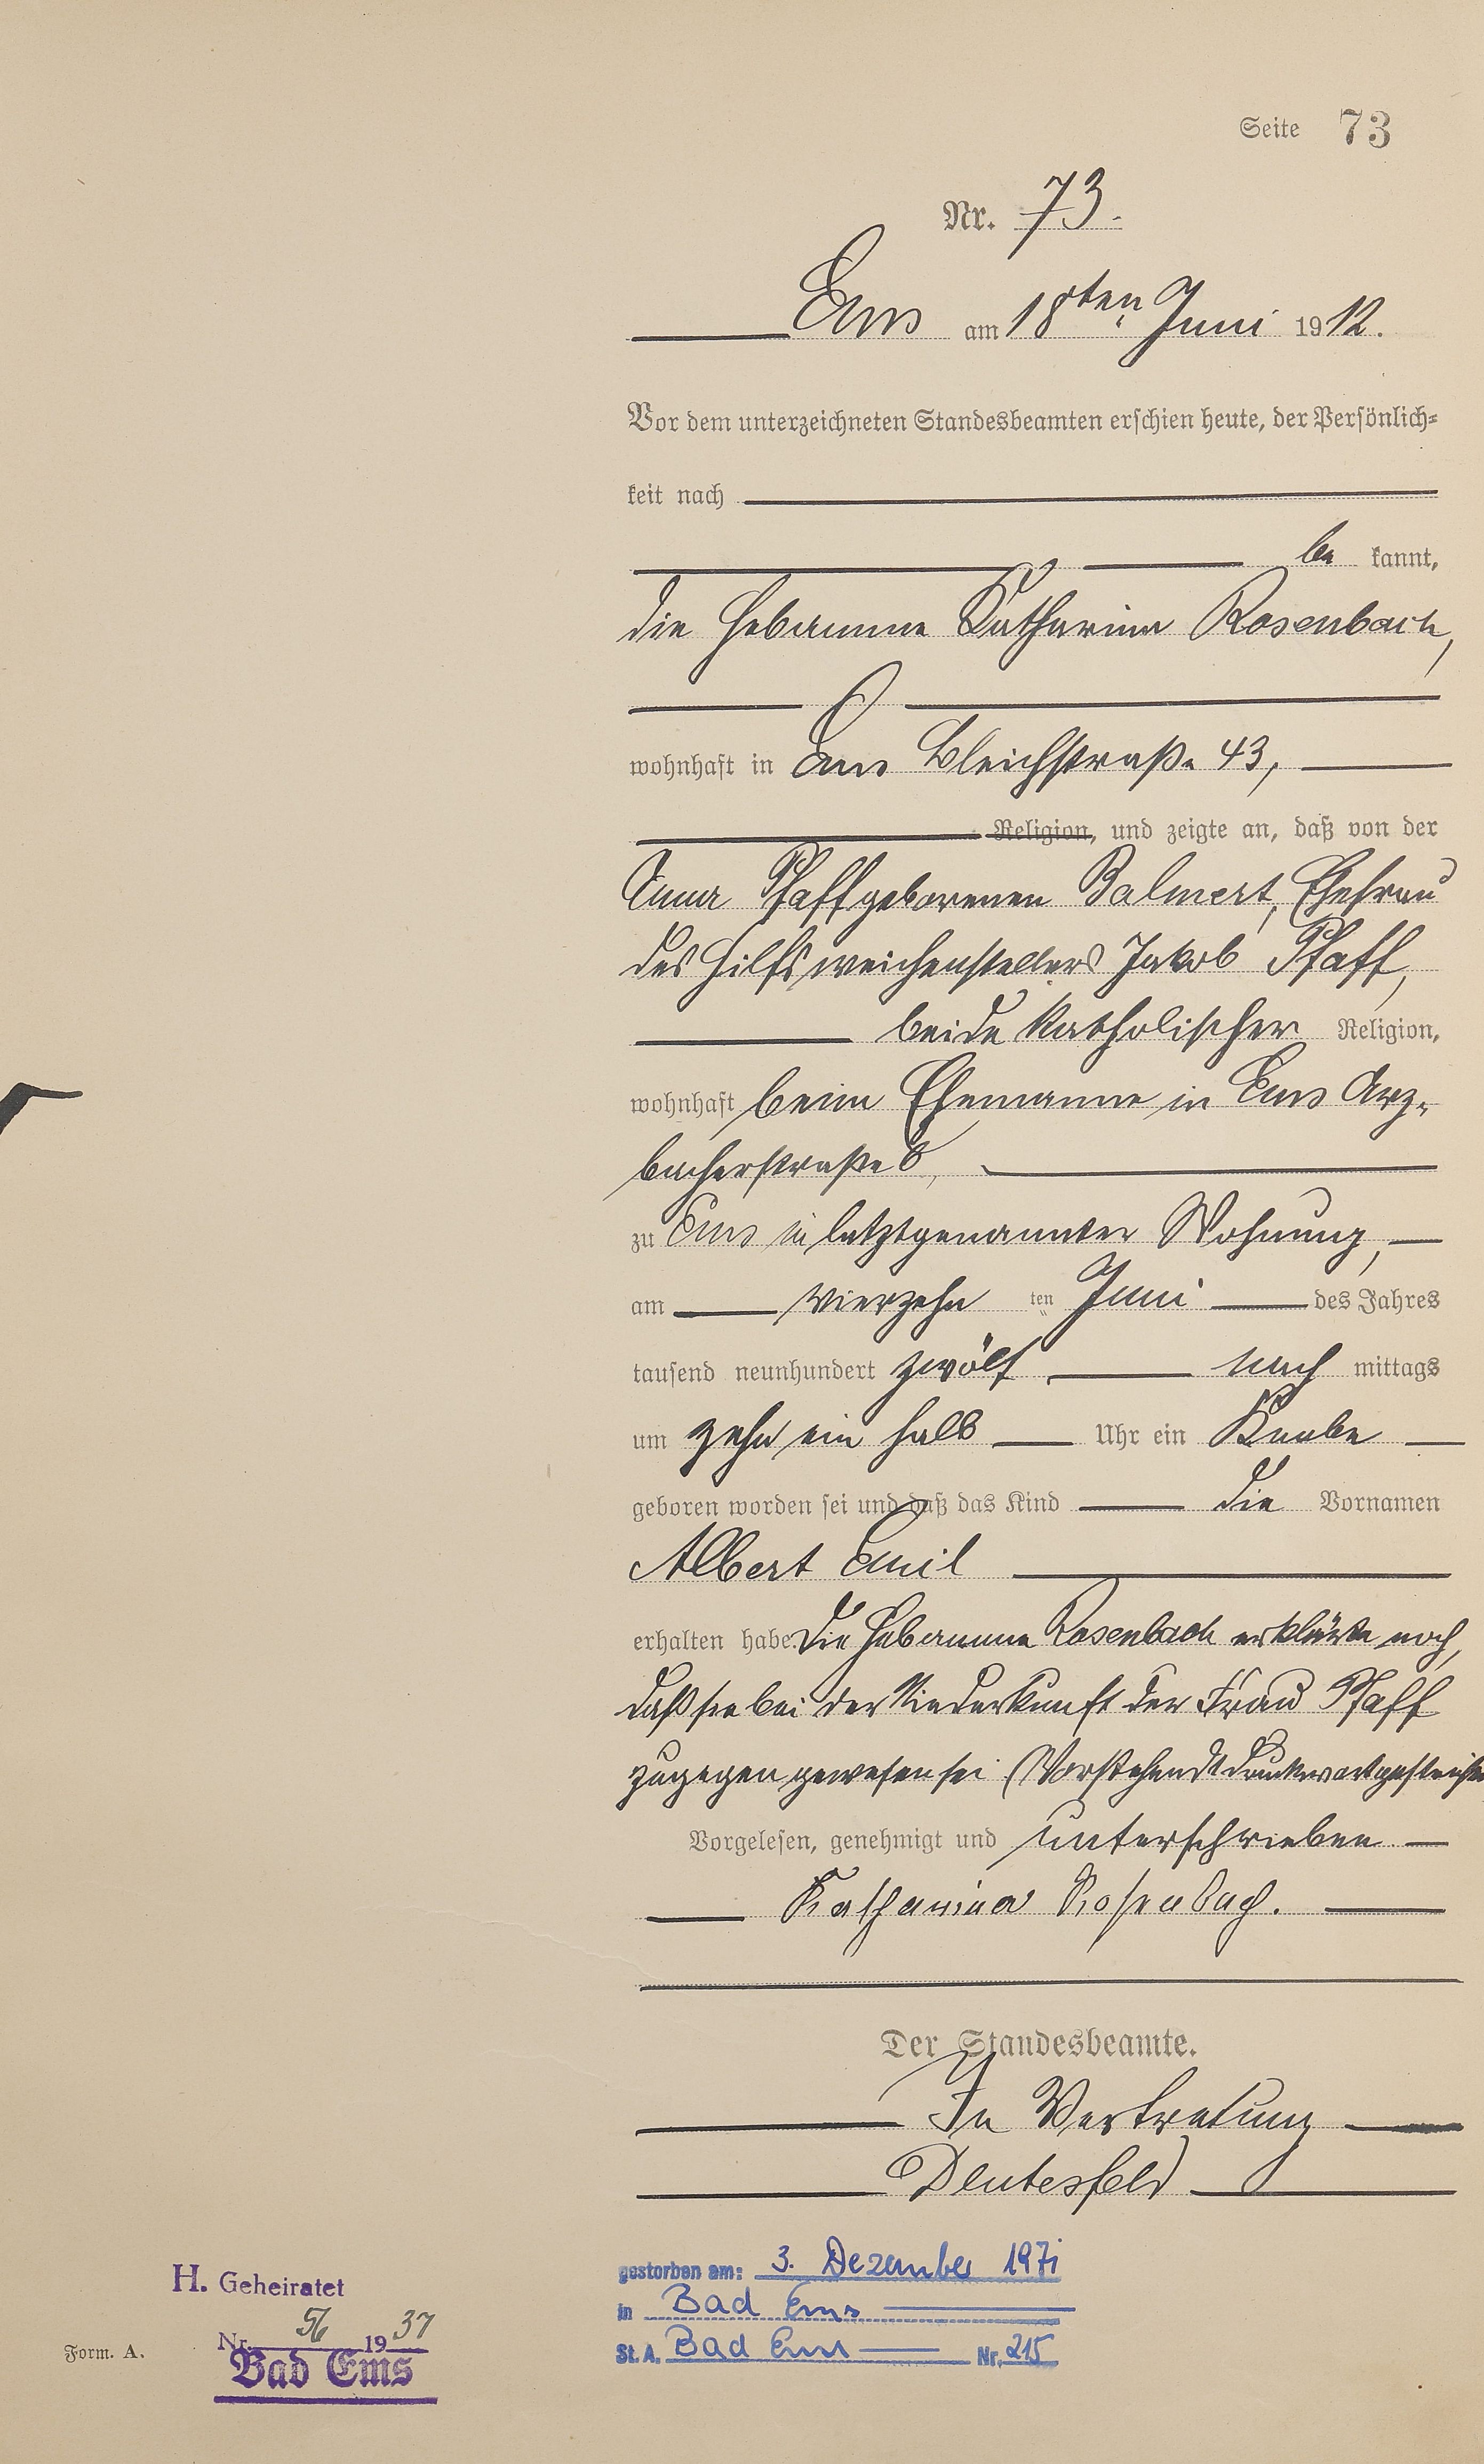 Seite 73
Nr. 73.
Ems am 18ten Juni 1912.
Vor dem unterzeichneten Standesbeamten erschien heute, der Persönlich-
keit nach
be kannt,
die Hebamme Katharina Rosenbach,
wohnhaft in Ems Bleichstraße 43,
Religion, und zeigte an, daß von der
Anna Pfaff geborenen Balmert, Ehefrau
des Hilfsweichenstellers Jakob Pfaff,
beide katholischer Religion,
wohnhaft beim Ehemanne in Ems Arz-
bacherstraße
zu Ems in letztgenannter Wohnung,
am vierzehn ten Juni des Jahres
tausend neunhundert zwölf, nach mittags
um zehn ein halb Uhr ein Knabe
geboren worden sei und daß das Kind die Vornamen
Albert Emil
erhalten habe. Die Hebamme Rosenbach erklärte noch,
daß sie bei der Niederkunft der Frau Pfaff
zugegen gewesen sei. (Vorstehend 1 Druckwort gestrichen
Vorgelesen, genehmigt und unterschrieben
Katharina Rosenbach.
Der Standesbeamte.
In Vertretung
Deutesfeld
H. Geheiratet
Nr. 56 1937
Bad Ems
Form. A.
gestorben am: 3. Dezember 1971
in Bad Ems
St. A. Bad Ems Nr. 215